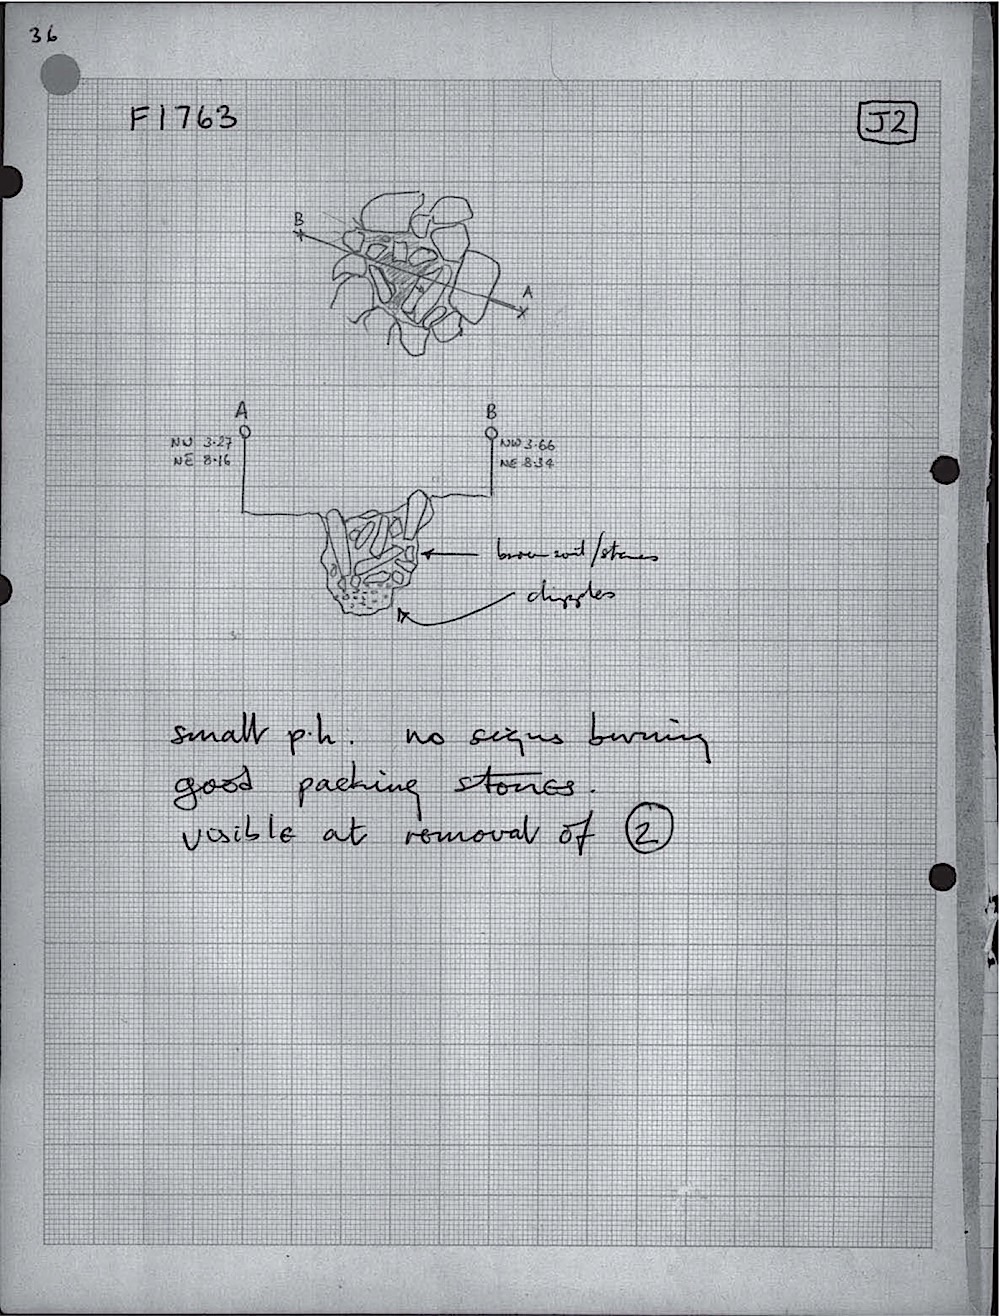 36
F1763
J2
B
A
A
B
NW 3.27
NE 8.16
NW 3.66
NE 8.34
brown soil/stones
small p.h. no signs burning
good packing stones.
visible at removal of 2